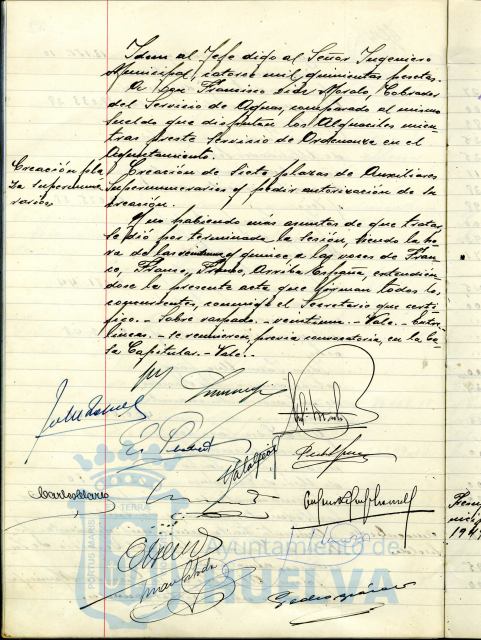 Idem al Jefe digo al Señor Ingeniero
Municipal, catorce mil quinientas pesetas.
A Don Francisco Díaz Morato, Cobrador
del Servicio de Aguas, comparado al mismo
sueldo que disfrutan los Alguaciles mien-
tras preste servicio de Ordenanza en el
Ayuntamiento.
Creación pla-
za supernume-
rarios
Creación de siete plazas de Auxiliares
Supernumerarios y pedir autorización de su
creación.
Y no habiendo más asuntos de que tratar
se dió por terminada la sesión, siendo la ho-
ra de las veintiuna y quince, a las voces de Fran-
co, Franco, Franco, Arriba España, extendién-
dose la presente acta que firman todos los
concurrentes, conmigo el Secretario que certi-
fico. - Sobre raspado. - veintiuna. - Vale. - Entre
líneas. - se reunieron, previa convocatoria, en la Ca-
sa Capitular. - Vale. -
PORTUS MARIS
TERRAE
Ayuntamiento de
HUELVA